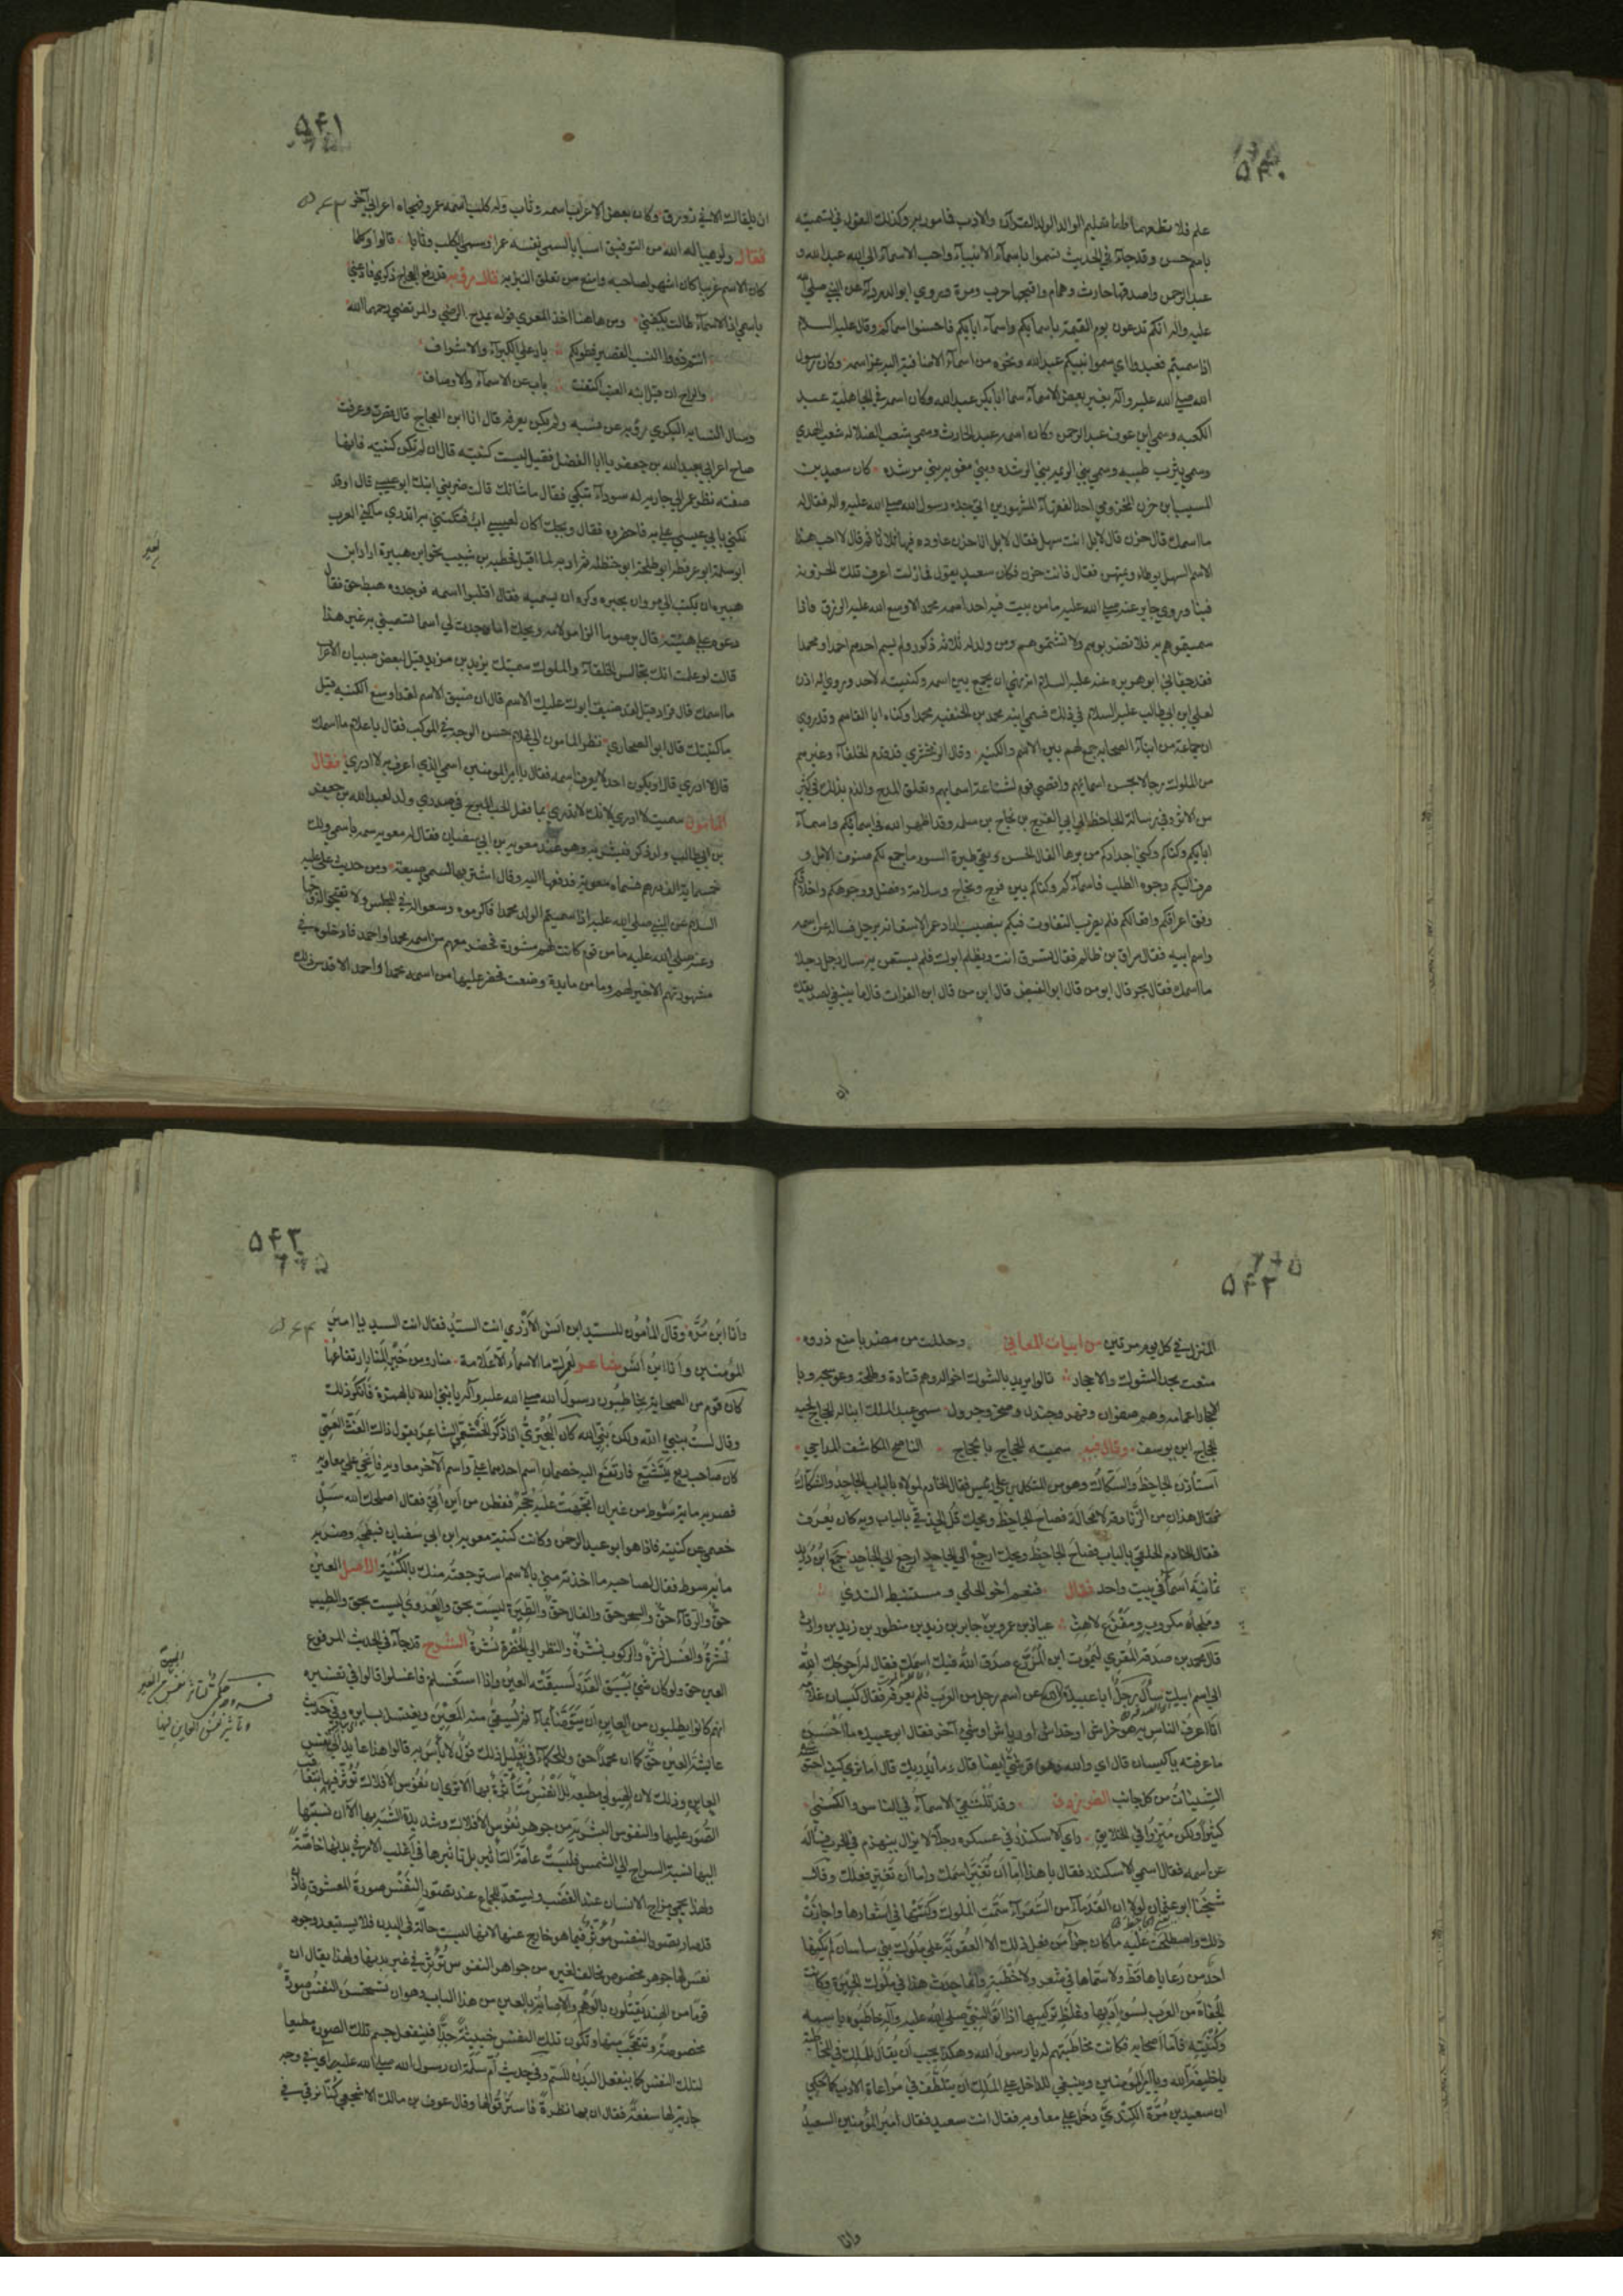 ۵۴۰
علم فلا تطعهما واما تعليم الوالد الولد القرآن والادب فمامور به وكذلك القول في تسميته
باسم حسن وقد جاء في الحديث تسموا باسماء الانبياء واحب الاسماء الى الله عبد الله و
عبد الرحمن واصدقها حارث وهمام واقبحها حرب ومرة وروي ابو الدرداء عن النبي صلى الله
عليه واله انكم تدعون يوم القيمة باسمائكم واسماء ابائكم فاحسنوا اسماكم وقال عليه السلام
اذا سميتم فعبدوا اي سموا بنيكم عبد الله ونحوه من اسماء الاضافة اليه عز اسمه وكان رسول
الله صلى الله عليه وآله يغير بعض الاسماء سما ابا بكر عبد الله وكان اسمه في الجاهلية عبد
الكعبه وسمي ابن عوف عبد الرحمن وكان اسمه عبد الحارث وسمي شعب الضلاله شعب الهدي
وسمي يثرب طيبه وسمي بني الريبه بني الرشده وبني مغويه بني مرشده كان سعيد بن
المسيب ابن حزن المخزومي احد الفقهاء المشهورين اتي جده رسول الله صلى الله عليه واله فقال له
ما اسمك قال حزن قال لا بل انت سهل فقال لا بل انا حزن عاوده فيها ثلاثا ثم قال لا احب هذا
الاسم السهل يوطاء ويمتهن فقال فانت حزن فكان سعيد يقول فما زلت اعرف تلك الحزونة
فينا وروي جابر عنه صلى الله عليه ما من بيت فيه احد اسمه محمد الا وسع الله عليه الرزق فاذا
سميتموهم به فلا تضربوهم ولا تشتموهم ومن ولد له ثلاثة ذكور ولم يسم احدهم احمد او محمدا
فقد جفاني ابو هريره عنه عليه السلام انه نهي ان يجمع بين اسمه وكنيته لاحد وروي انه اذن
لعلي ابن ابي طالب عليه السلام في ذلك فسمي ابنه محمد بن الحنفيه محمدا وكناه ابا القاسم وقد روي
ان جماعة من ابناء الصحابه جمع لهم بين الاسم والكنيه وقال الزمخشري قد قدم الخلفاء وغيرهم
من الملوك رجالا بحسن اسمائهم واقصي قوم لشناعة اسمائهم وتعلق المدح والذم بذلك في كثير
من الامور وفي رسالة الجاحظ الى ابي الفرج بن نجاح بن سلمه وقد اظهر الله في اسمائكم واسماء
ابائكم وكناكم وكني اجدادكم من برهان الفال الحسن ونفي طيرة السوء ما جمع لكم صنوف الامل و
صرف اليكم وجوه الطلب فاسماءكم وكناكم بين فرج ونجاح وسلامة وفضل ووجوهكم واخلاقكم
وفق اعراقكم وافعالكم فلم يضرب التفاوت فيكم بنصيب اراد عمر الاستعانة برجل فساله عن اسمه
واسم ابيه فقال سراق بن ظالم فقال تسرق انت ويظلم ابوك فلم يستعن به سال رجل رجلا
ما اسمك فقال بحر قال ابو من قال ابو الفيض قال ابن من قال ابن الفرات قال ما ينبغي لصديقك
ان
۵۴۱
ان يلقاك الا في زورق وكان بعض الاعراب اسمه وثاب وله كلب اسمه عمرو فهجاه اعرابي آخر
فقال ولو هيا له الله من التوفيق اسبابا لسمي نفسه عمرا وسمي الكلب وثابا قالوا وكلما
كان الاسم غريبا كان اشهر لصاحبه وامنع من تعلق النبز به قال رؤبه قد رفع العجاج ذكري فادعني
باسمي اذا الاسماء طالت يكفني ومن هاهنا اخذ المعري قوله يمدح الرضي والمرتضي رحمهما الله
انتم ذووا النسب القصير فطولكم باد علي الكبراء والاشراف
والراح ان قيل ابنه العنب اكتفت باب عن الاسماء والاوصاف
وسال النسابه البكري رؤبه عن نسبه ولم يكن يعرفه قال انا ابن العجاج قال قصرت وعرفت
صاح اعرابي بعبد الله بن جعفر يا ابا الفضل فقيل ليست كنيته قال ان لم تكن كنيته فانها
صفته نظر عمر الي جاريه له سوداء تبكي فقال ما شانك قالت ضربني ابنك ابو عيسي قال اوقد
تكني بابي عيسي علي به فاحضروه فقال ويحك اكان لعيسي اب فتكتني به اتدري ما كني العرب
ابو سلمة ابو عرفطه ابو طلحة ابو حنظله ثم ادبه لما اقبل قحطبه بن شبيب نحو ابن هبيرة اراد ابن
هبيره ان يكتب الي مروان بخبره وكره ان يسميه فقال اقلبوا اسمه فوجدوه هبط حق فقال
دعوه علي هيئته قال برصوما الزامر لامه ويحك اما وجدت لي اسما تسميني به غير هذا
قالت لو علمت انك تجالس الخلفاء والملوك سميتك يزيد بن مزيد قيل لبعض صبيان الاعراب
ما اسمك قال قراد قيل لقد ضيق ابوك عليك الاسم قال ان ضيق الاسم لقد اوسع الكنيه قيل
ما كنيتك قال ابو الصحاري نظر المامون الي غلام حسن الوجه في الموكب فقال يا غلام ما اسمك
قال لا ادري قال او يكون احد لا يعرف اسمه فقال يا امير المومنين اسمي الذي اعرف به لا ادري فقال
المامون سميت لا ادري لانك لا تدري بما فعل الحب المبرح في صدري ولد لعبد الله بن جعفر
بن ابي طالب ولد ذكر فبشر به وهو عند معويه بن ابي سفيان فقال له معويه سمه باسمي ولك
خمسمايه الف درهم فسماه معويه فدفعها اليه وقال اشتر بها لسمي ضيعة ومن حديث علي عليه
السلام عن النبي صلى الله عليه اذا سميتم الولد محمدا فاكرموه وسعوا له في المجلس ولا تقبحوا له وجها
وعنه صلى الله عليه ما من قوم كانت لهم مشورة فحضر معهم من اسمه محمد او احمد فادخلوه في
مشورتهم الا خير لهم وما من مايدة وضعت فحضر عليها من اسمه محمد او احمد الا قدس ذلك
۵۴۲
المنزل في كل يوم مرتين من ابيات المعاني وحللت من مضر بامنع ذروه
منعت بحد الشوك والاحجار قالوا يريد بالشوك اخواله وهم قتادة وطلحه وعوسجه وبا
لاحجار اعمامه وهم صفوان وفهر وجندل وصخر وجرول سمي عبد الملك ابنا له الحجاج لحبه
للحجاج ابن يوسف وقال فيه سميته الحجاج بالحجاج الناصح المكاشف المداجي
استأذن الجاحظ والشكاك وهو من المتكلمين علي رئيس فقال الخادم لمولاه بالباب الجاحد والشكاك
فقال هذان من الزنادقة لا محالة فصاح الجاحظ ويحك قل الحدقي بالباب وبه كان يعرف
فقال الخادم الحلقي بالباب فصاح الجاحظ ويحك ارجع الي الجاحد ارجع الي الجاحد جمع ابن دريد
ثمانية اسماء في بيت واحد فقال فنعم اخو الجلي ومستنبط الندي
وملجاه مكروب ومفزع لاهث عباد بن عمرو بن جابر بن زيد بن منظور بن زيد بن وارث
قال محمد بن صدقة المقري ليموت ابن المزرع صدق الله فيك اسمك فقال له احوجك الله
الي اسم ابيك سأل رجل ابا عبيدة عن اسم رجل من العرب فلم يعرفه فقال كيسان غلامه
انا اعرف الناس به هو خراش او خداش او رياش او شيء آخر فقال ابو عبيده ما احسن
ما عرفته يا كيسان قال اي والله وهو قرشي ايضا قال وما يدريك قال اما تري كيف احتوت
الشينات من كل جانب الفرزدق وقد تلتقي الاسماء في الناس والكني
كثيرا ولكن ميزوا في الخلايق راي الاسكندر في عسكره رجلا لا يزال ينهزم في الحرب فسأله
عن اسمه فقال اسمي الاسكندر فقال يا هذا اما ان تغير اسمك واما ان تغير فعلك وقال
شيخنا ابو عثمان لولا ان القدماء من الشعراء سمت الملوك وكنتها في اشعارها واجازت
ذلك واصطلحت عليه ما كان جزاء من فعل ذلك الا العقوبة علي ان ملوك بني ساسان لم يكنها
احد من رعاياها قط ولا سماها في شعر ولا خطبة وانما حدث هذا في ملوك الحيرة وكانت
الجفاة من العرب لسوء ادبها وغلظ تركيبها اذا اتوا النبي صلى الله عليه وآله خاطبوه باسمه
وكنيته فاما اصحابه فكانت مخاطبتهم له يا رسول الله وهكذا يجب ان يقال للملك في المخاطبة
يا خليفة الله ويا امير المؤمنين وينبغي للداخل علي الملك ان يتلطف في مراعاة الادب كما حكي
ان سعيد بن مرة الكندي دخل علي معاويه فقال انت سعيد فقال امير المؤمنين السعيد
وانا
۵۴۳
وانا ابن مرة وقال المأمون للسيد ابن انس الازدي انت السيد فقال انت السيد يا امير
المؤمنين وانا ابن انس شاعر لعمرك ما الاسماء الا علامة منار ومن خير المنار ارتفاعها
كان قوم من الصحابة يخاطبون رسول الله صلى الله عليه وآله يا نبيء الله بالهمزة فانكر ذلك
وقال لست بنبيء الله ولكن نبي الله كان البحتري اذا ذكر الخثعمي الشاعر يقول ذلك الغث العمي
كان صاحب ربع يتشيع فارتفع اليه خصمان اسم احدهما علي واسم الآخر معاويه فانحي علي معاويه
فضربه مايه سوط من غير ان اتجهت عليه حجة ففطن من اين اتي فقال اصلحك الله سل
خصمي عن كنيته فاذا هو ابو عبد الرحمن وكانت كنية معويه ابن ابي سفيان فبطحه وضربه
مايه سوط فقال لصاحبه ما اخذته مني بالاسم استرجعته منك بالكنية الاصل العين
حق والرقاء حق والسحر حق والفال حق والطيرة ليست بحق والعدوي ليست بحق والطيب
نشرة والعسل نشرة والركوب نشرة والنظر الي الخضرة نشرة الشرح قد جاء في الحديث المرفوع
العين حق ولو كان شيء يسبق القدر لسبقته العين واذا استغسلتم فاغسلوا قالوا في تفسيره
انهم كانوا يطلبون من العاين ان يتوضأ بماء ثم يسقي منه المعين ويغتسل بسايره وفي حديث
عايشة العين حق كما ان محمدا حق وللحكماء في تعليل ذلك قول لا بأس به قالوا هذا عايد الي نفس
العاين وذلك لان الهيولي مطيعة للانفس متأثرة بها الا تري ان نفوس الافلاك تؤثر فيها بتعاقب
الصور عليها والنفوس البشرية من جوهر نفوس الافلاك وشديدة الشبه بها الا ان نسبتها
اليها نسبة السراج الي الشمس فليست عامة التأثير بل تأثيرها في اغلب الامر في بدنها خاصة
ولهذا يحمي مزاج الانسان عند الغضب ويستعد للجماع عند تصور النفس صورة المعشوق فاذا
قد صار تصور النفس مؤثرا فيما هو خارج عنها لانها ليست حالة في البدن فلا يستبعد وجود
نفس لها جوهر مخصوص مخالف لغيره من جواهر النفوس تؤثر في غير بدنها ولهذا يقال ان
قوما من الهند يقتلون بالوهم والاصابة بالعين من هذا الباب وهو ان تستحسن النفس صورة
مخصوصة وتتعجب منها وتكون تلك النفس خبيثة جدا فينفعل جسم تلك الصورة مطيعا
لتلك النفس كما ينفعل البدن للسم وفي حديث ام سلمة ان رسول الله صلى الله عليه راي في وجه
جارية لها سفعة فقال ان بها نظرة فاسترقوا لها وقال عوف بن مالك الاشجعي كنا نرقي في